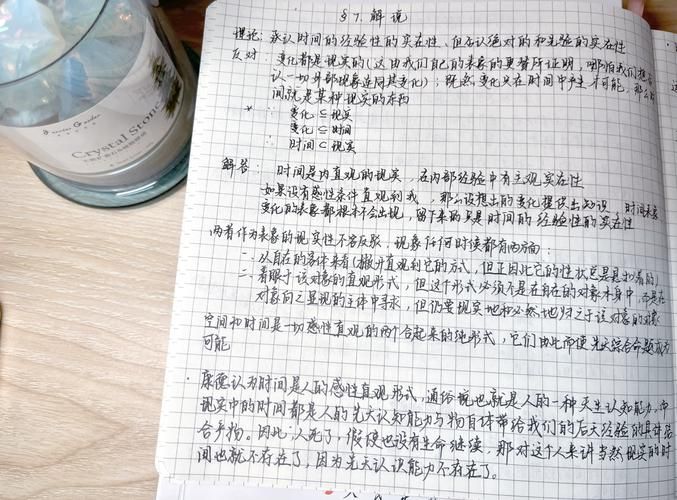 Crystal Stone
§7. 解说
理论: 承认时间的经验性的实在性, 但否认绝对的和先验的实在性
反对: 变化都是现实的(这由我们自己的表象的更替所证明, 哪怕我们想否
认一切外部现象连同其变化); 既然变化只在时间中才可能, 那么时
间就是某种现实的东西
∵ 变化 ⊆ 现实
变化 ⊆ 时间
∴ 时间 ⊂ 现实
解答: 时间是内直观的现实, 在内部经验中有主观实在性
如果没有感性条件直观到我, 那么设想出的变化提供出知识, 时间表象
变化的表象都根本不会出现, 留下来的只是时间的经验性的实在性
两者作为表象的现实性不容反驳, 现象任何时候都有两方面:
一. 从自在的客体来看(撇开直观到它的方式, 但正因此它的性状总是是 的)
二. 着眼于该对象的直观形式, 但这个形式必须不是在自在的对象本身中, 而是在
对象向之显现的主体中寻求, 但仍要现实地和必然地归之于该对象的现象
空间和时间是一切感性直观的两个合起来的纯形式, 它们由此而使先天综合命题成为
可能
· 康德认为时间是人的感性直观形式, 通俗说也就是人的一种天生认知能力,
现实中的时间都是人的先天认知能力与物自体带给我们的后天经验的具体结
合产物。因此, 人死了, 假使也没有生命继续, 那对这个人来讲当然现实的时
间也就不存在了, 因为先天认识能力不存在了。